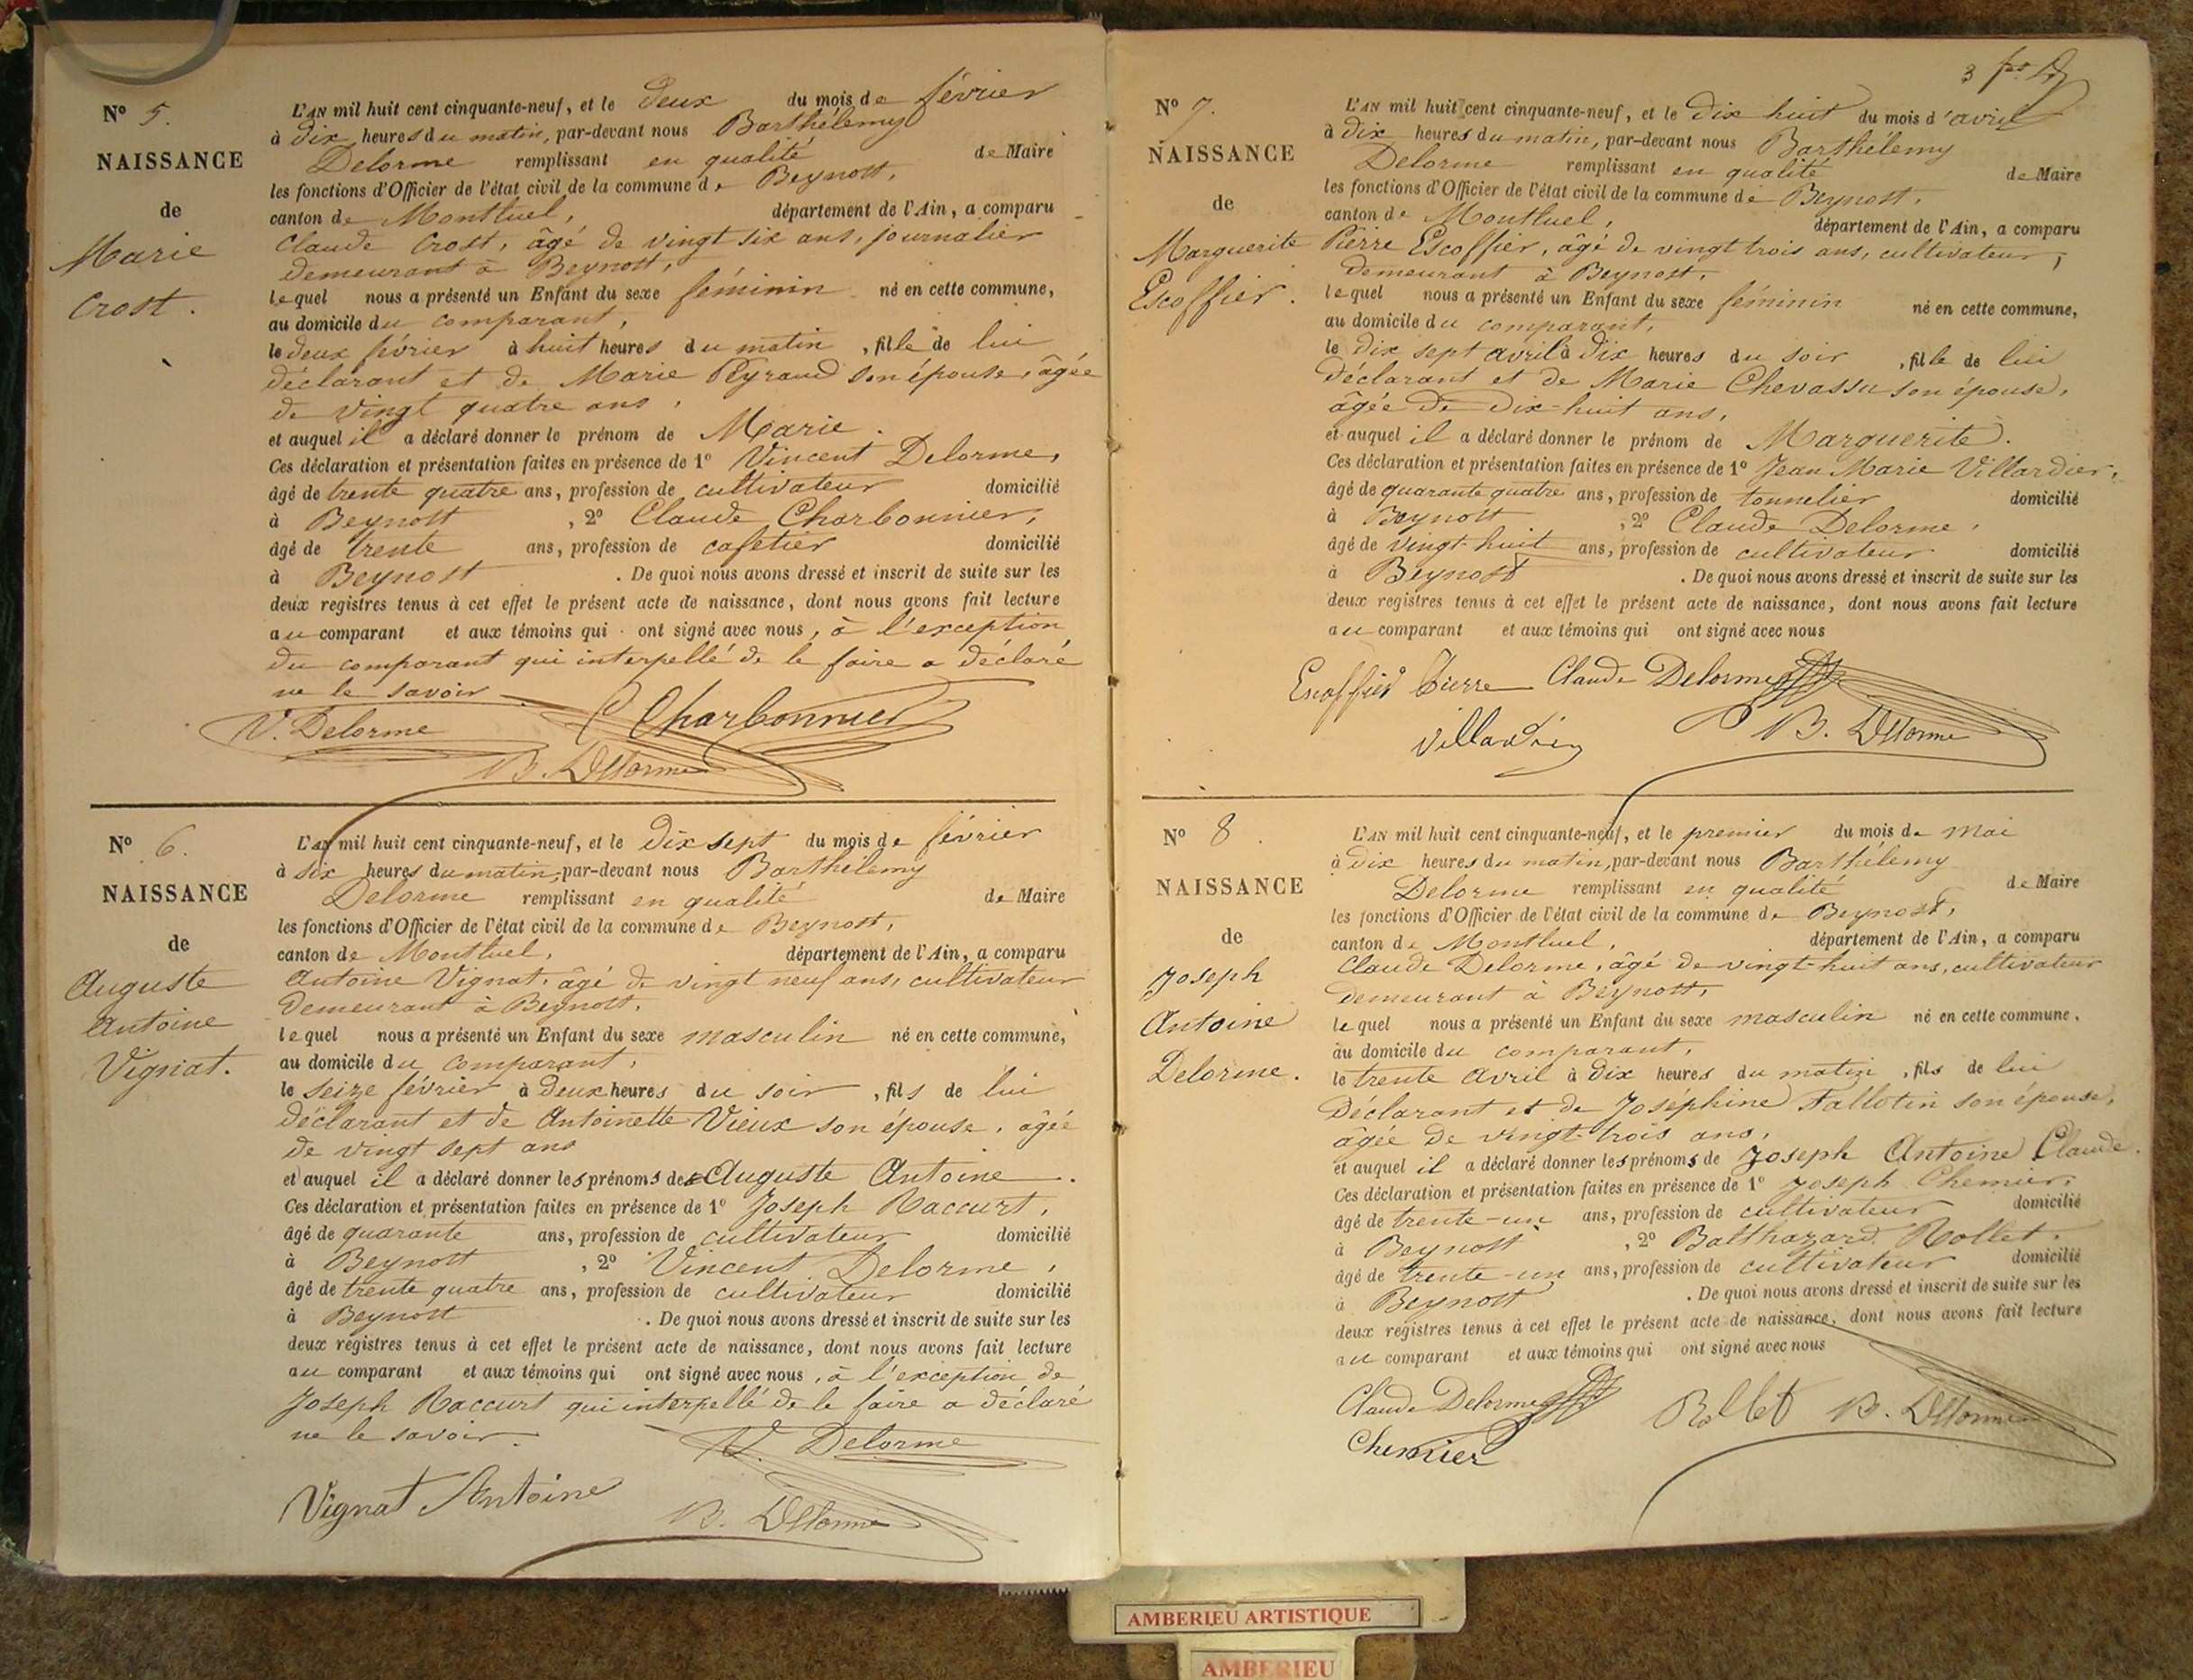 N° 5.
NAISSANCE
de
Marie
Crost.
L'AN mil huit cent cinquante-neuf, et le deux du mois de février
à dix heures du matin, par-devant nous Barthélemy
Delorme remplissant en qualité de Maire
les fonctions d'Officier de l'état civil de la commune de Beynost,
canton de Montluel, département de l'Ain, a comparu
Claude Crost, âgé de vingt six ans, journalier
demeurant à Beynost,
lequel nous a présenté un Enfant du sexe féminin né en cette commune,
au domicile du comparant,
le deux février à huit heures du matin, fille de lui
déclarant et de Marie Peyraud son épouse, âgée
de vingt quatre ans,
et auquel il a déclaré donner le prénom de Marie.
Ces déclaration et présentation faites en présence de 1° Vincent Delorme,
âgé de trente quatre ans, profession de cultivateur domicilié
à Beynost, 2° Claude Charbonnier,
âgé de trente ans, profession de cafetier domicilié
à Beynost. De quoi nous avons dressé et inscrit de suite sur les
deux registres tenus à cet effet le présent acte de naissance, dont nous avons fait lecture
au comparant et aux témoins qui ont signé avec nous, à l'exception
du comparant qui interpellé de le faire a déclaré
ne le savoir
V. Delorme C Charbonnier
B. Delorme
N° 6.
NAISSANCE
de
Auguste
Antoine
Vignat.
L'AN mil huit cent cinquante-neuf, et le dix sept du mois de février
à six heures du matin, par-devant nous Barthélemy
Delorme remplissant en qualité de Maire
les fonctions d'Officier de l'état civil de la commune de Beynost,
canton de Montluel, département de l'Ain, a comparu
Antoine Vignat, âgé de vingt neuf ans, cultivateur
demeurant à Beynost,
lequel nous a présenté un Enfant du sexe masculin né en cette commune,
au domicile du comparant,
le seize février à deux heures du soir, fils de lui
déclarant et de Antoinette Vieux son épouse, âgée
de vingt sept ans
et auquel il a déclaré donner les prénoms de Auguste Antoine.
Ces déclaration et présentation faites en présence de 1° Joseph Raccurt,
âgé de quarante ans, profession de cultivateur domicilié
à Beynost, 2° Vincent Delorme,
âgé de trente quatre ans, profession de cultivateur domicilié
à Beynost. De quoi nous avons dressé et inscrit de suite sur les
deux registres tenus à cet effet le présent acte de naissance, dont nous avons fait lecture
au comparant et aux témoins qui ont signé avec nous, à l'exception de
Joseph Raccurt qui interpellé de le faire a déclaré
ne le savoir.
V. Delorme
Vignat Antoine B. Delorme
3
N° 7.
NAISSANCE
de
Marguerite
Escoffier.
L'AN mil huit cent cinquante-neuf, et le dix huit du mois d'avril
à dix heures du matin, par-devant nous Barthélemy
Delorme remplissant en qualité de Maire
les fonctions d'Officier de l'état civil de la commune de Beynost,
canton de Montluel, département de l'Ain, a comparu
Pierre Escoffier, âgé de vingt trois ans, cultivateur,
demeurant à Beynost,
lequel nous a présenté un Enfant du sexe féminin né en cette commune,
au domicile du comparant,
le dix sept avril à dix heures du soir, fille de lui
déclarant et de Marie Chevassu son épouse,
âgée de dix-huit ans,
et auquel il a déclaré donner le prénom de Marguerite.
Ces déclaration et présentation faites en présence de 1° Jean Marie Villardier,
âgé de quarante quatre ans, profession de tonnelier domicilié
à Beynost, 2° Claude Delorme,
âgé de vingt-huit ans, profession de cultivateur domicilié
à Beynost. De quoi nous avons dressé et inscrit de suite sur les
deux registres tenus à cet effet le présent acte de naissance, dont nous avons fait lecture
au comparant et aux témoins qui ont signé avec nous
Escoffier Pierre Claude Delorme
Villardier B. Delorme
N° 8.
NAISSANCE
de
Joseph
Antoine
Delorme.
L'AN mil huit cent cinquante-neuf, et le premier du mois de mai
à dix heures du matin, par-devant nous Barthélemy
Delorme remplissant en qualité de Maire
les fonctions d'Officier de l'état civil de la commune de Beynost,
canton de Montluel, département de l'Ain, a comparu
Claude Delorme, âgé de vingt-huit ans, cultivateur
demeurant à Beynost,
lequel nous a présenté un Enfant du sexe masculin né en cette commune,
au domicile du comparant,
le trente avril à dix heures du matin, fils de lui
déclarant et de Josephine Fallotin son épouse,
âgée de vingt-trois ans,
et auquel il a déclaré donner les prénoms de Joseph Antoine Claude.
Ces déclaration et présentation faites en présence de 1° Joseph Chemier,
âgé de trente-un ans, profession de cultivateur domicilié
à Beynost, 2° Balthazard Rollet,
âgé de trente-un ans, profession de cultivateur domicilié
à Beynost. De quoi nous avons dressé et inscrit de suite sur les
deux registres tenus à cet effet le présent acte de naissance, dont nous avons fait lecture
au comparant et aux témoins qui ont signé avec nous
Claude Delorme Rollet B. Delorme
Chemier
AMBERIEU ARTISTIQUE
AMBERIEU